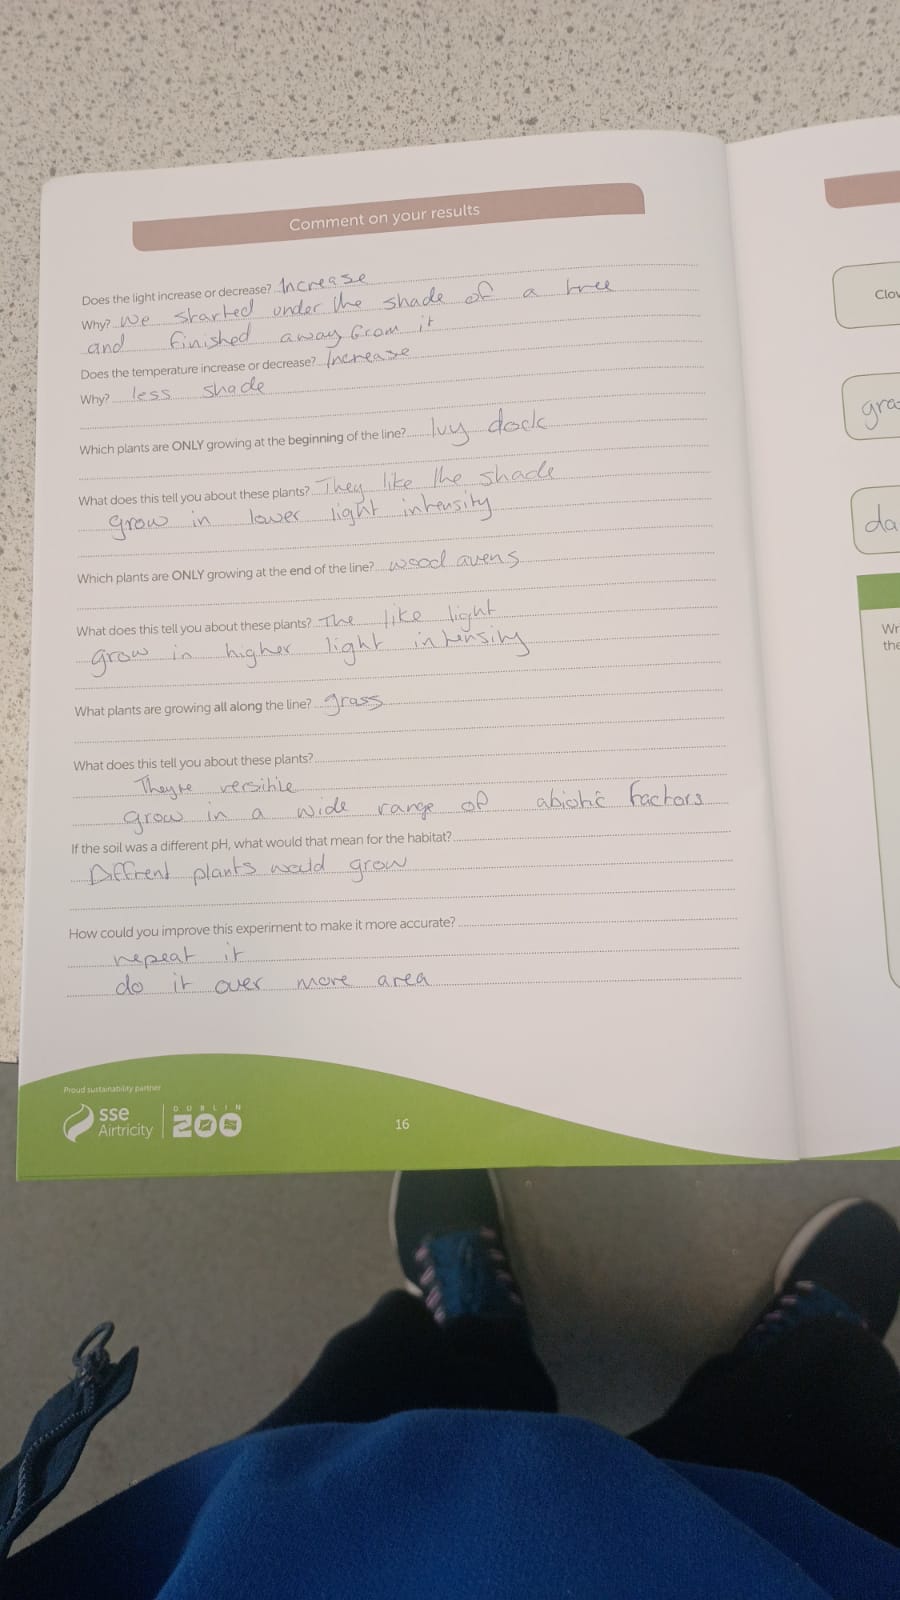 Comment on your results
Does the light increase or decrease? Increase
Why? We started under the shade of a tree
and finished away from it
Does the temperature increase or decrease? Increase
Why? less shade
Which plants are ONLY growing at the beginning of the line? Ivy dock
What does this tell you about these plants? They like the shade
grow in lower light intensity
Which plants are ONLY growing at the end of the line? wood avens
What does this tell you about these plants? The like light
grow in higher light intensity
What plants are growing all along the line? grass
What does this tell you about these plants?
Theyre versihle
grow in a wide range of abiotic factors
If the soil was a different pH, what would that mean for the habitat?
Diffrent plants would grow
How could you improve this experiment to make it more accurate?
repeat it
do it over more area
Proud sustainability partner
sse
Airtricity
DUBLIN
ZOO
16
Clov
gra
da
Wr
the